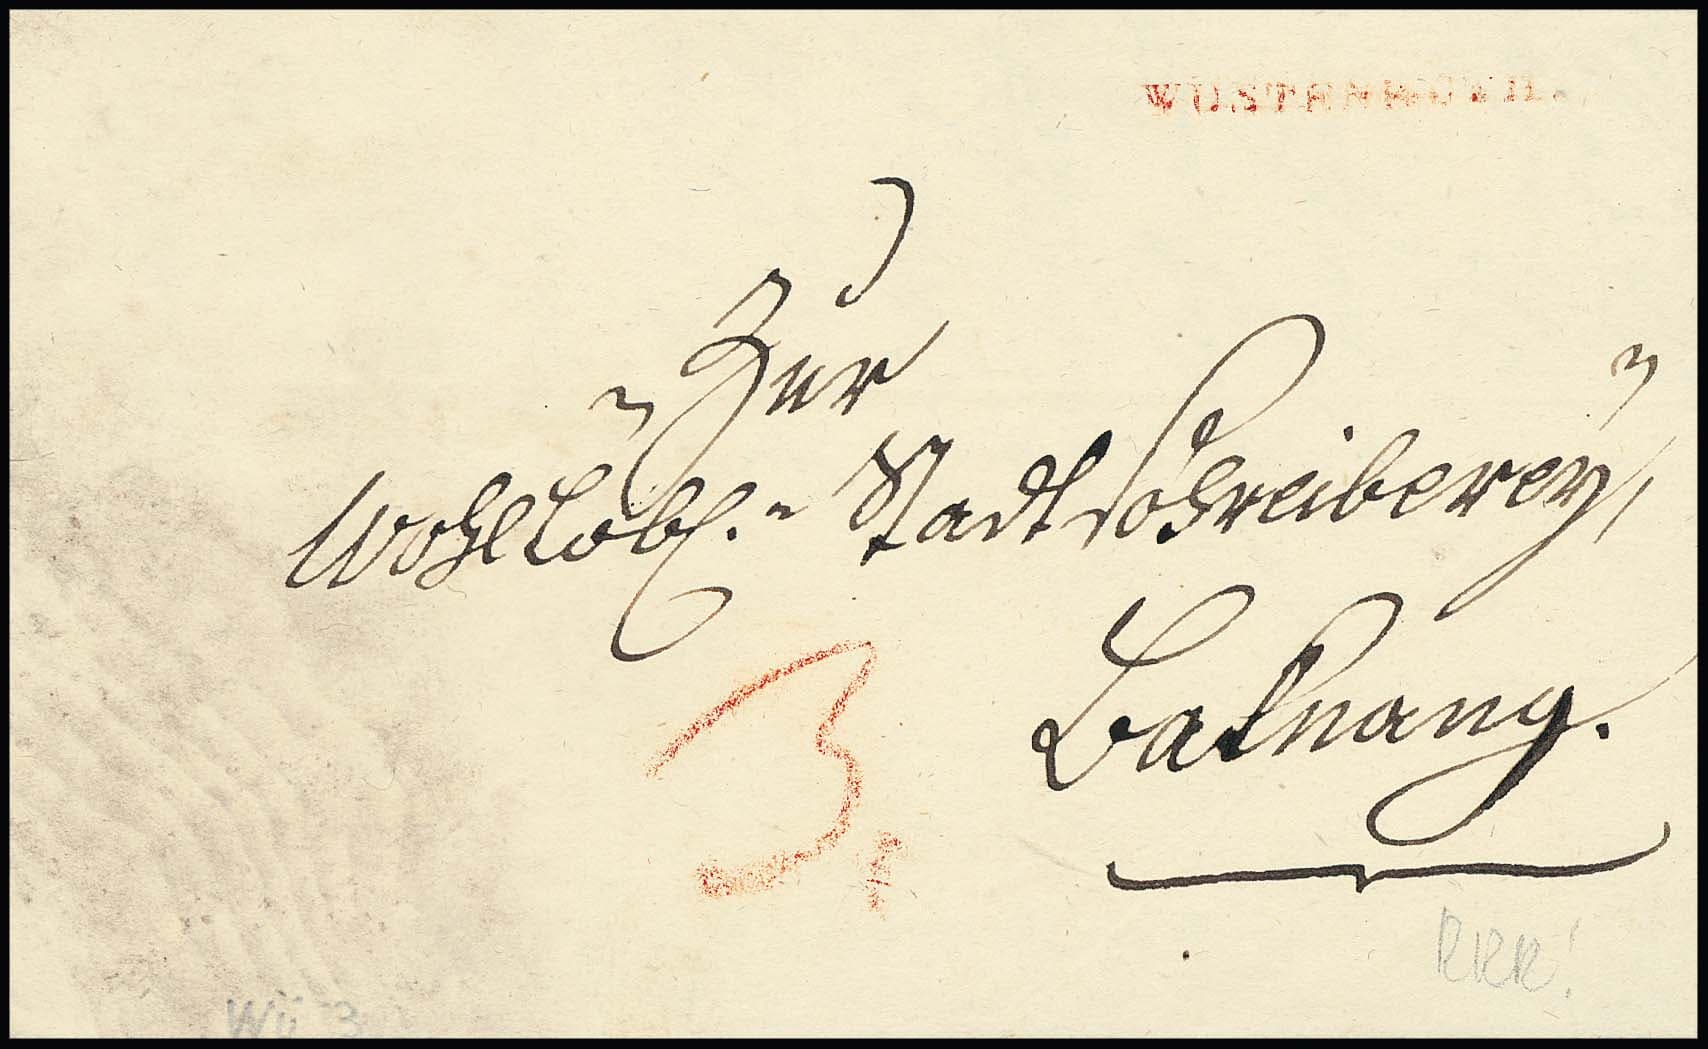 WÜSTENROTH.
Zur
Wohllöbl. Stadtschreiberey,
Baknang.
3.
RRR!
Wü 3